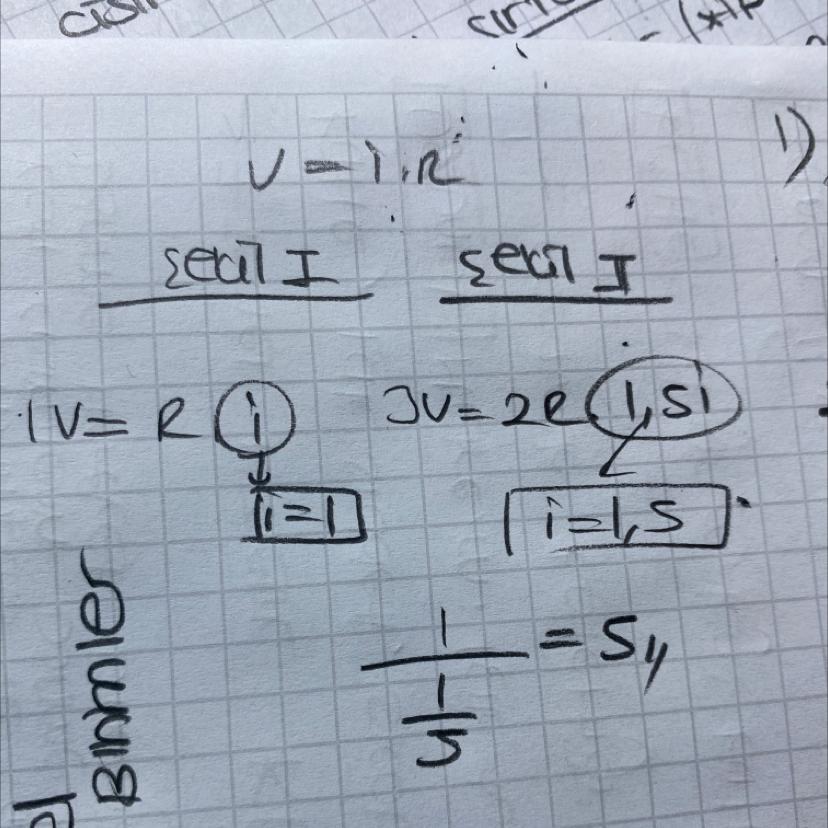 V = i.R
Şekil I Şekil II
1V = R i 3V = 2R. 1,5i
i=1 i=1,5
1
1 = 5,,
5
1)
Birimler